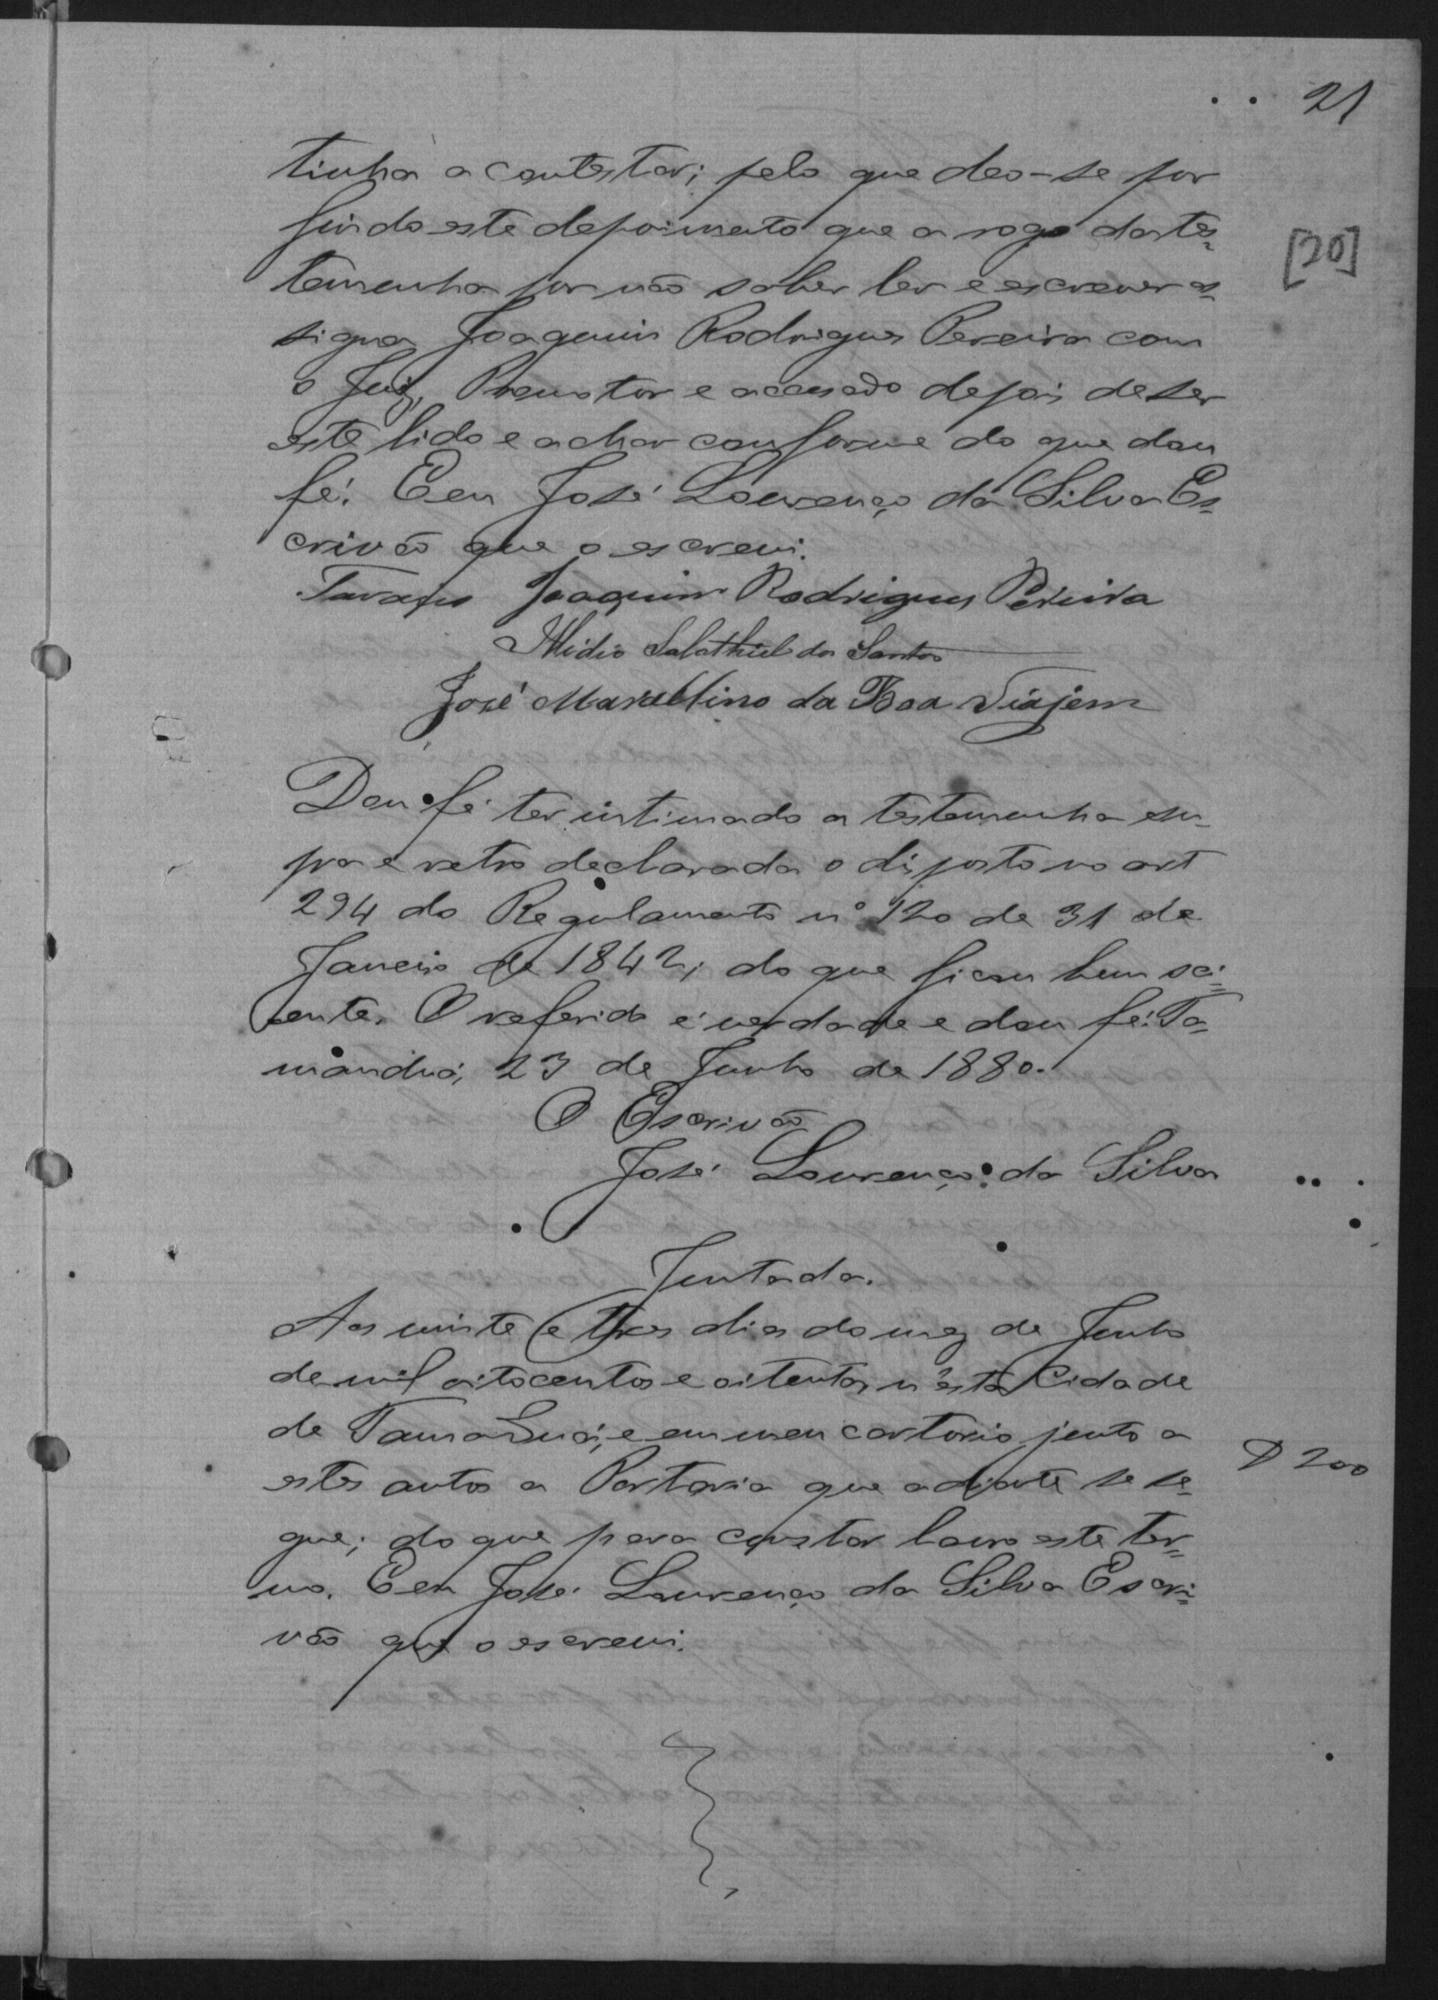 21
tinha a contestar; pelo que deo-se por
findo este depoimento que a rogo da tes=
temunha por não saber ler e escrever as=
signa Joaquim Rodrigues Pereira com
o Juiz, Promotor e accusado depois de ser
este lido e achar conforme do que dou
fé. E eu José Lourenço da Silva Es=
crivão que o escrevi.
Tavares Joaquim Rodrigues Pereira
Salathiel dos Santos
José Marcellino da Boa Viajem
[20]
Dou fé ter intimado a testemunha su=
pra e retro declarada o disposto no art
294 do Regulamento nº 120 de 31 de
Janeiro de 1842; do que ficou bem sci=
ente. O referido é verdade e dou fé. Ta=
manduá, 23 de Junho de 1880.
O Escrivão
José Lourenço da Silva
Juntada.
Aos vinte e tres dias do mez de Junho
de mil oitocentos e oitenta, n'esta Cidade
de Tamanduá, e em meu cartorio, junto a
estes autos a Portaria que adiante se se=
gue; do que para constar lavro este ter=
mo. E eu José Lourenço da Silva Escri=
vão que o escrevi.
200